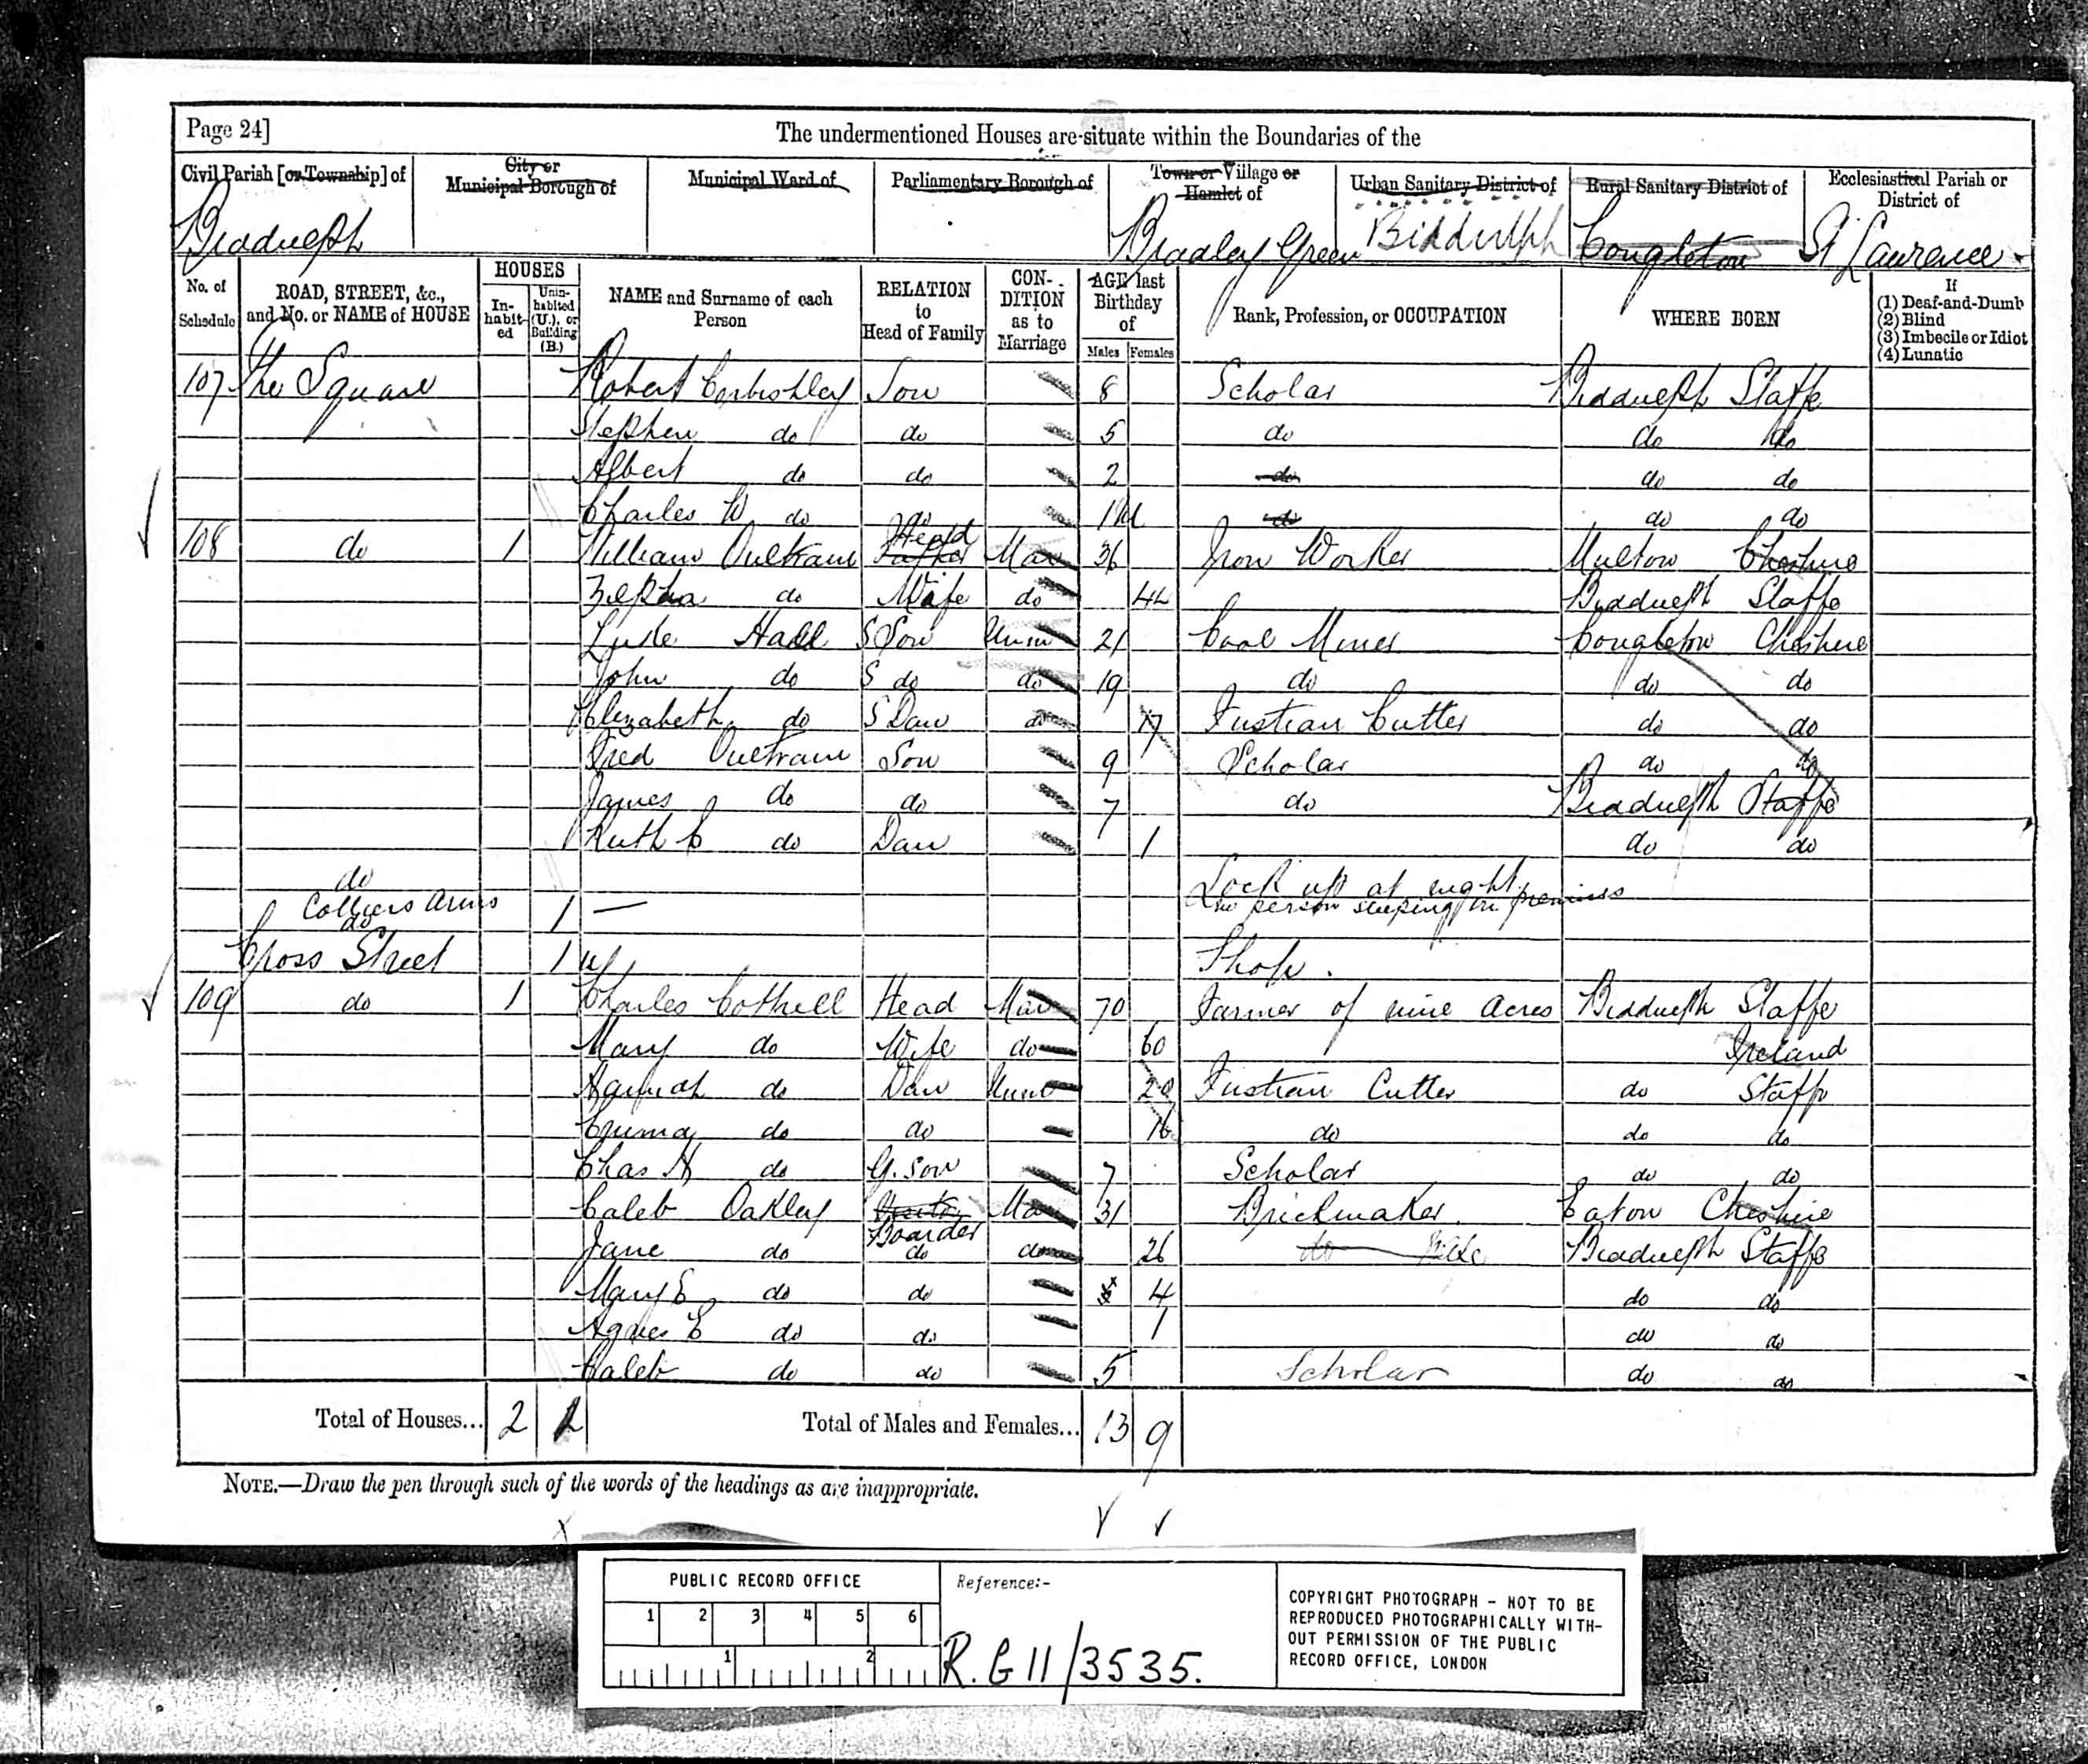 Page 24]
The undermentioned Houses are situate within the Boundaries of the
Civil Parish [or Township] of
City or Municipal Borough of
Municipal Ward of
Parliamentary Borough of
Town or Village or Hamlet of
Urban Sanitary District of
Rural Sanitary District of
Ecclesiastical Parish or District of
Biddulph Bradley Green Biddulph Congleton St Lawrence
No. of Schedule
ROAD, STREET, &c., and No. or NAME of HOUSE
HOUSES
In-habit-ed
Unin-habited (U.), or Building (B.)
NAME and Surname of each Person
RELATION to Head of Family
CON-DITION as to Marriage
AGE last Birthday of
Males Females
Rank, Profession, or OCCUPATION
WHERE BORN
If
(1) Deaf-and-Dumb
(2) Blind
(3) Imbecile or Idiot
(4) Lunatic
107 The Square Robert Corbishley Son 8 Scholar Biddulph Staffs
Stephen do do 5 do do do
Albert do do 2 do do do
Charles W do do 1 M do do do
108 do 1 William Oultram Head Mar 36 Iron Worker Cheshire
Zilpha do Wife do 42 Biddulph Staffs
Luke Hall S Son Unm 21 Coal Miner Congleton Cheshire
John do S do do 19 do do do
Elizabeth do S Daur do 17 Fustian Cutter do do
Fred Oultram Son 9 Scholar do do
James do do 7 do Biddulph Staffs
Ruth E do Daur 1 do do
do
Colliers Arms 1 — Lock up at night
no person sleeping on premises
do
Cross Street 1 u Shop.
109 do 1 Charles Cottrell Head Mar 70 Farmer of nine Acres Biddulph Staffs
Mary do Wife do 60 Ireland
Hannah do Daur Unm 20 Fustian Cutter do Staffs
Emma do do 16 do do do
Chas H do G. Son 7 Scholar do do
Caleb Oakley Visitor Mar 31 Brickmaker. Eaton Cheshire
Boarder
Jane do do do 26 do Wife Biddulph Staffs
Mary E do do 4 do do
Agnes E do do 1 do do
Caleb do do 5 Scholar do do
Total of Houses... 2 2 Total of Males and Females... 13 9
NOTE.—Draw the pen through such of the words of the headings as are inappropriate.
PUBLIC RECORD OFFICE
1 2 3 4 5 6
1 2
Reference:-
R.G 11/3535.
COPYRIGHT PHOTOGRAPH - NOT TO BE
REPRODUCED PHOTOGRAPHICALLY WITH-
OUT PERMISSION OF THE PUBLIC
RECORD OFFICE, LONDON